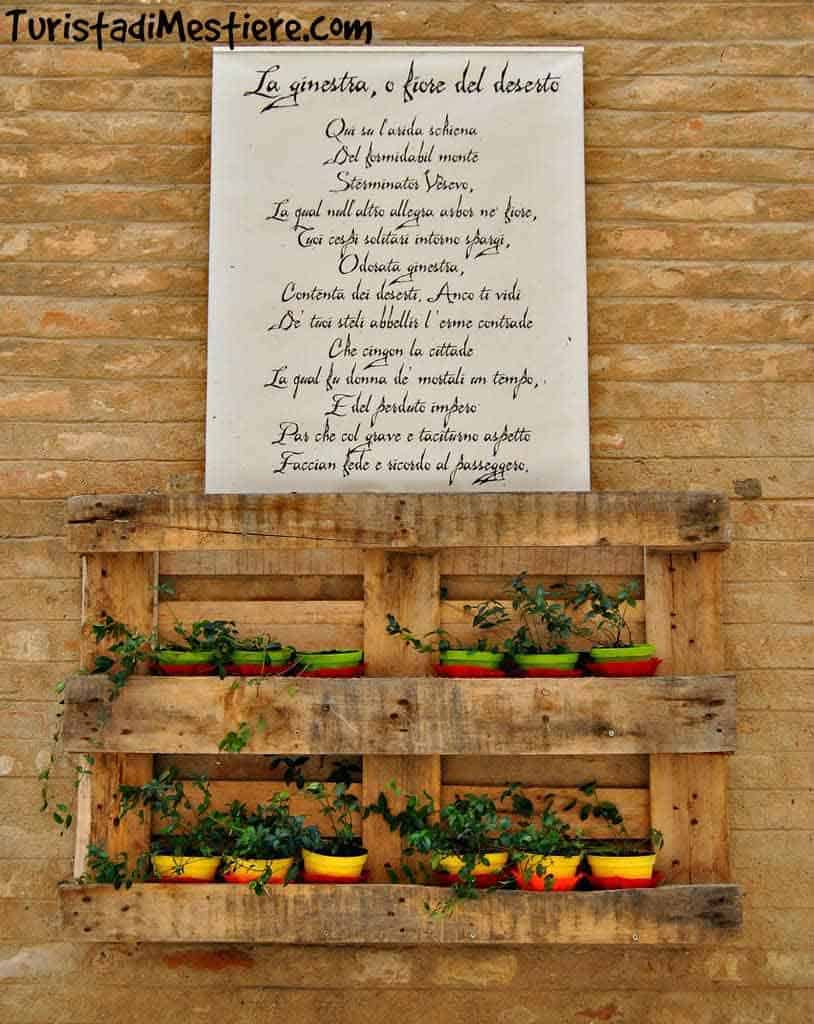 TuristadiMestiere.com
La ginestra, o fiore del deserto
Qui su l'arida schiena
Del formidabil monte
Sterminator Vesevo,
La qual null'altro allegra arbor né fiore,
Tuoi cespi solitari intorno spargi,
Odorata ginestra,
Contenta dei deserti. Anco ti vidi
De' tuoi steli abbellir l'erme contrade
Che cingon la cittade
La qual fu donna de' mortali un tempo,
E del perduto impero
Par che col grave e taciturno aspetto
Faccian fede e ricordo al passeggero.